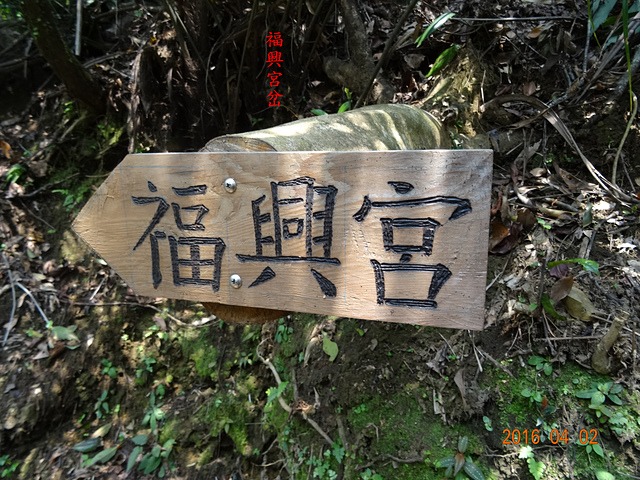 福興宮岔
福興宮
2016 04 02